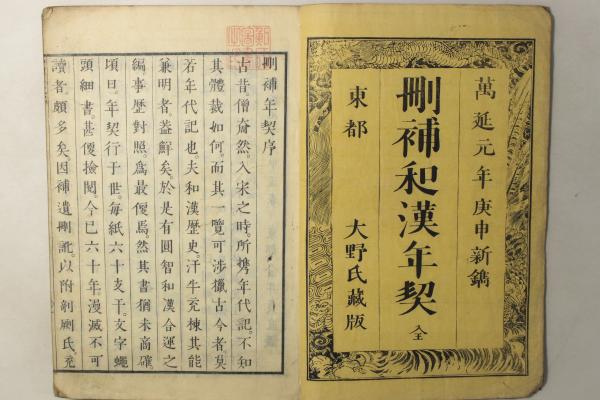 萬延元年庚申新鐫
刪補和漢年契 全
東都 大野氏藏版
刪補年契序
古昔僧奝然。入宋之時。所携年代記。不知
其體裁如何。而其一覽可渉獵古今者莫
若年代記也。夫和漢歷史。汗牛充棟其能
兼明者蓋鮮矣。於是有圓智和漢合運之
編事歷對照。爲最便焉。然其書猶未商確
頃日。年契行于世。每紙六十支干。文字蠅
頭細書。甚便撿閱。今已六十年漫滅不可
讀者。頗多矣。因補遺刪訛。以附剞劂氏。充